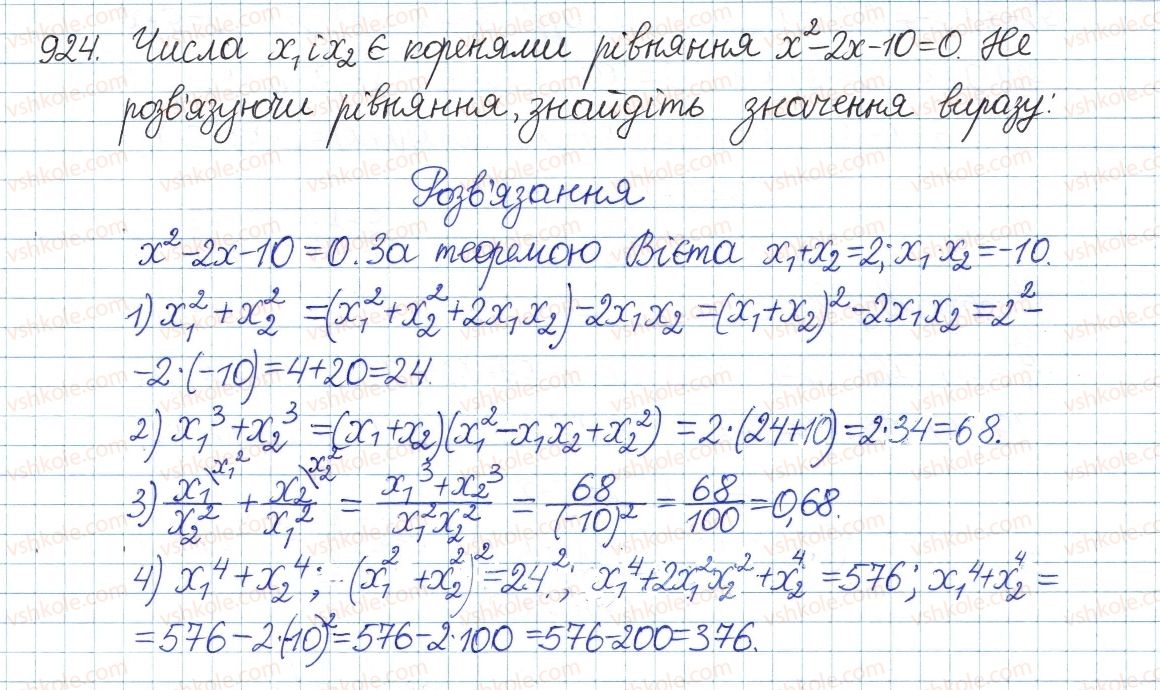 924. Числа x₁ і x₂ є коренями рівняння x²-2x-10=0. Не
розв'язуючи рівняння, знайдіть значення виразу:
Розв'язання
x²-2x-10=0. За теоремою Вієта x₁+x₂=2; x₁·x₂=-10.
1) x₁²+x₂² =(x₁²+x₂²+2x₁x₂)-2x₁x₂=(x₁+x₂)²-2x₁x₂=2²-
-2·(-10)=4+20=24.
2) x₁³+x₂³=(x₁+x₂)(x₁²-x₁x₂+x₂²)=2·(24+10)=2·34=68.
3) x₁\x₁²/x₂² + x₂\x₂²/x₁² = (x₁³+x₂³)/(x₁²x₂²) = 68/(-10)² = 68/100 =0,68.
4) x₁⁴+x₂⁴; (x₁²+x₂²)²=24²; x₁⁴+2x₁²x₂²+x₂⁴=576; x₁⁴+x₂⁴=
=576-2·(-10)²=576-2·100=576-200=376.